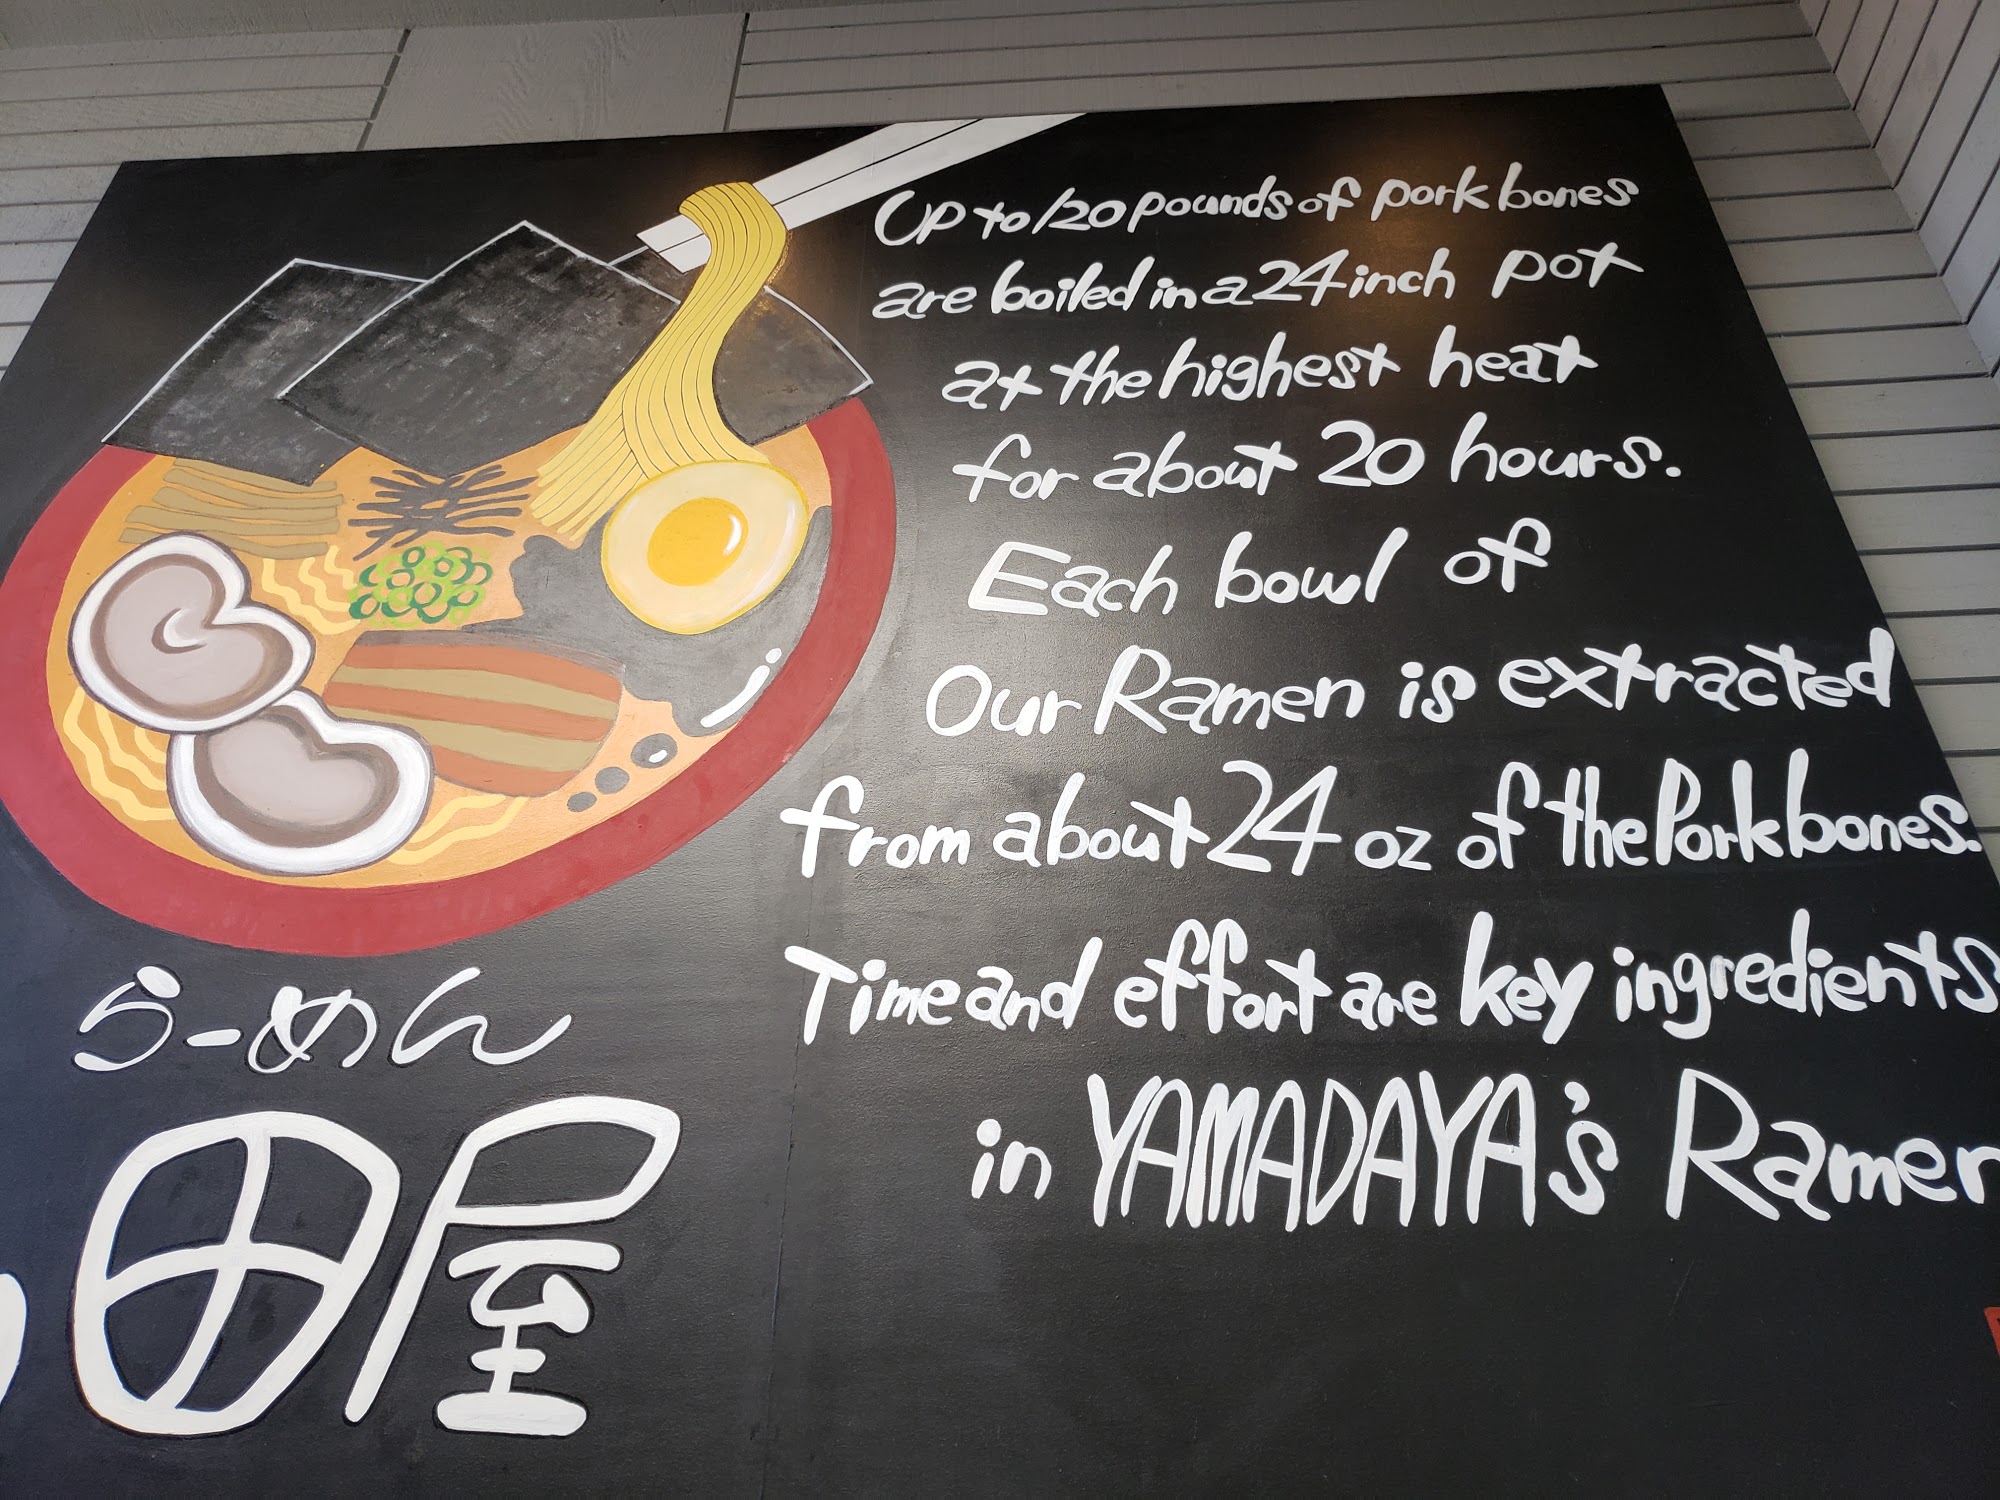 Up to 120 pounds of pork bones
are boiled in a 24 inch pot
at the highest heat
for about 20 hours.
Each bowl of
Our Ramen is extracted
from about 24 oz of the Pork bones.
Time and effort are key ingredients
in YAMADAYA's Ramen
らーめん
田屋